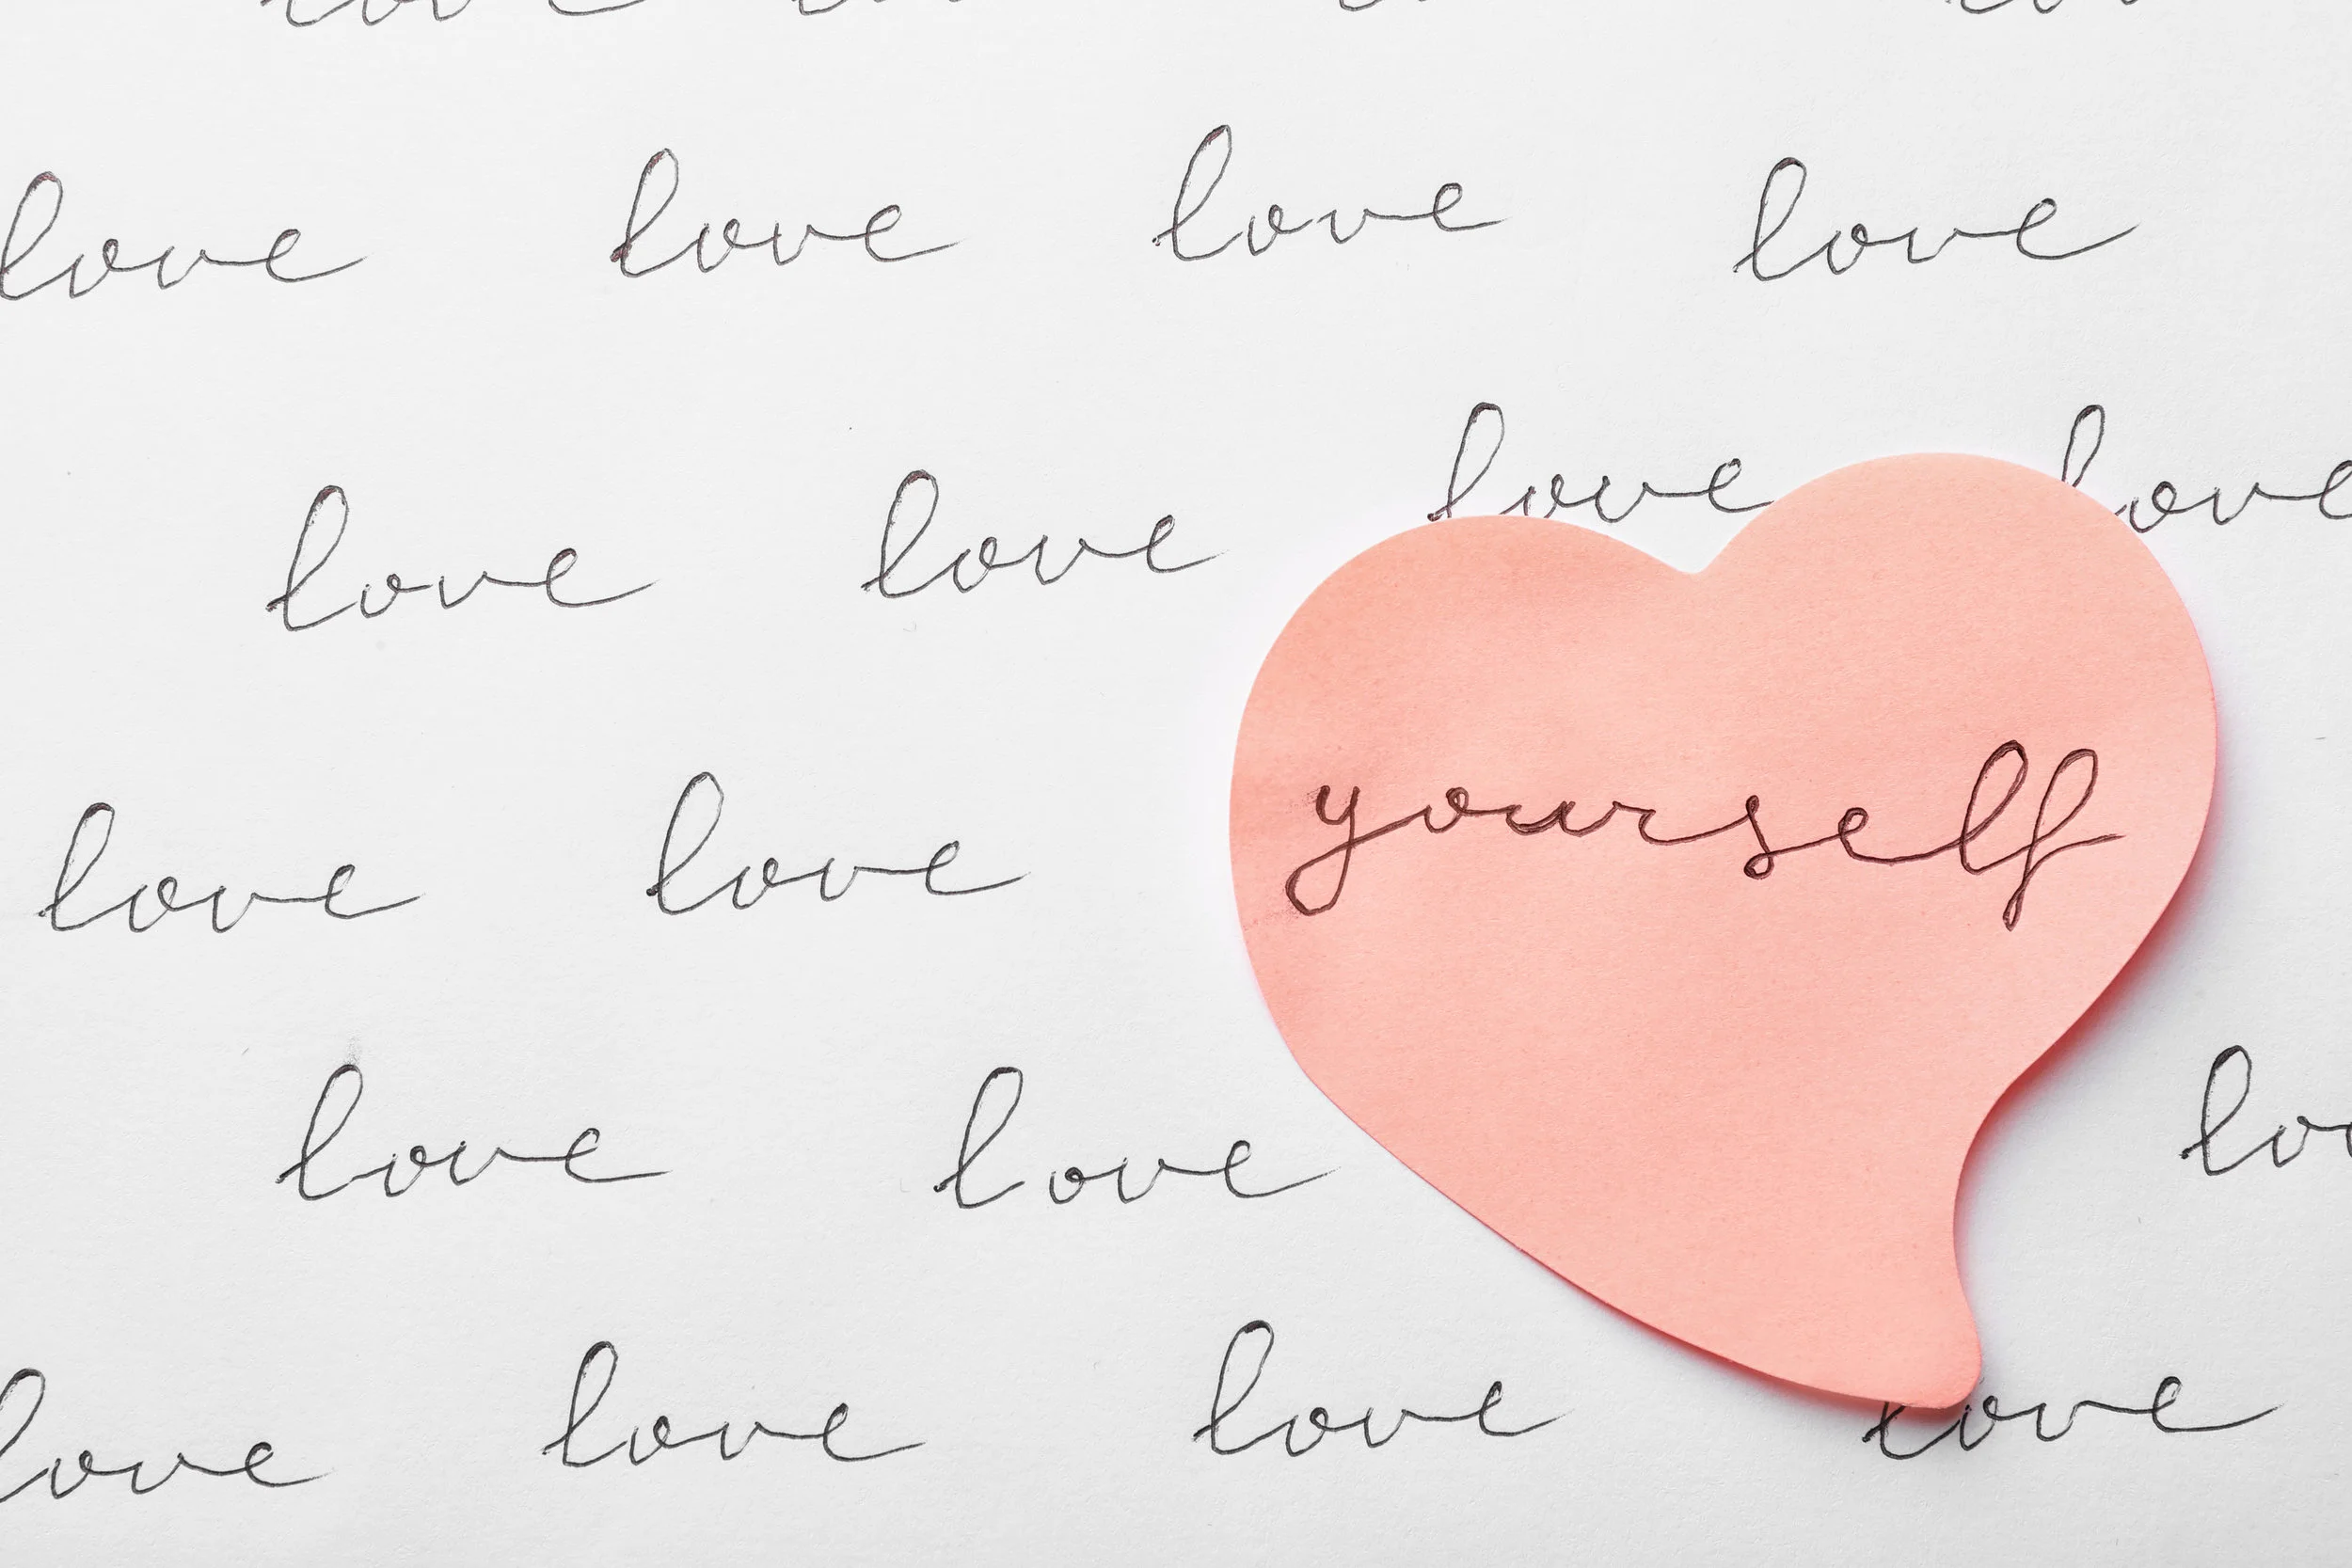 love love love love
love love love love
love love yourself
love love
love love love love